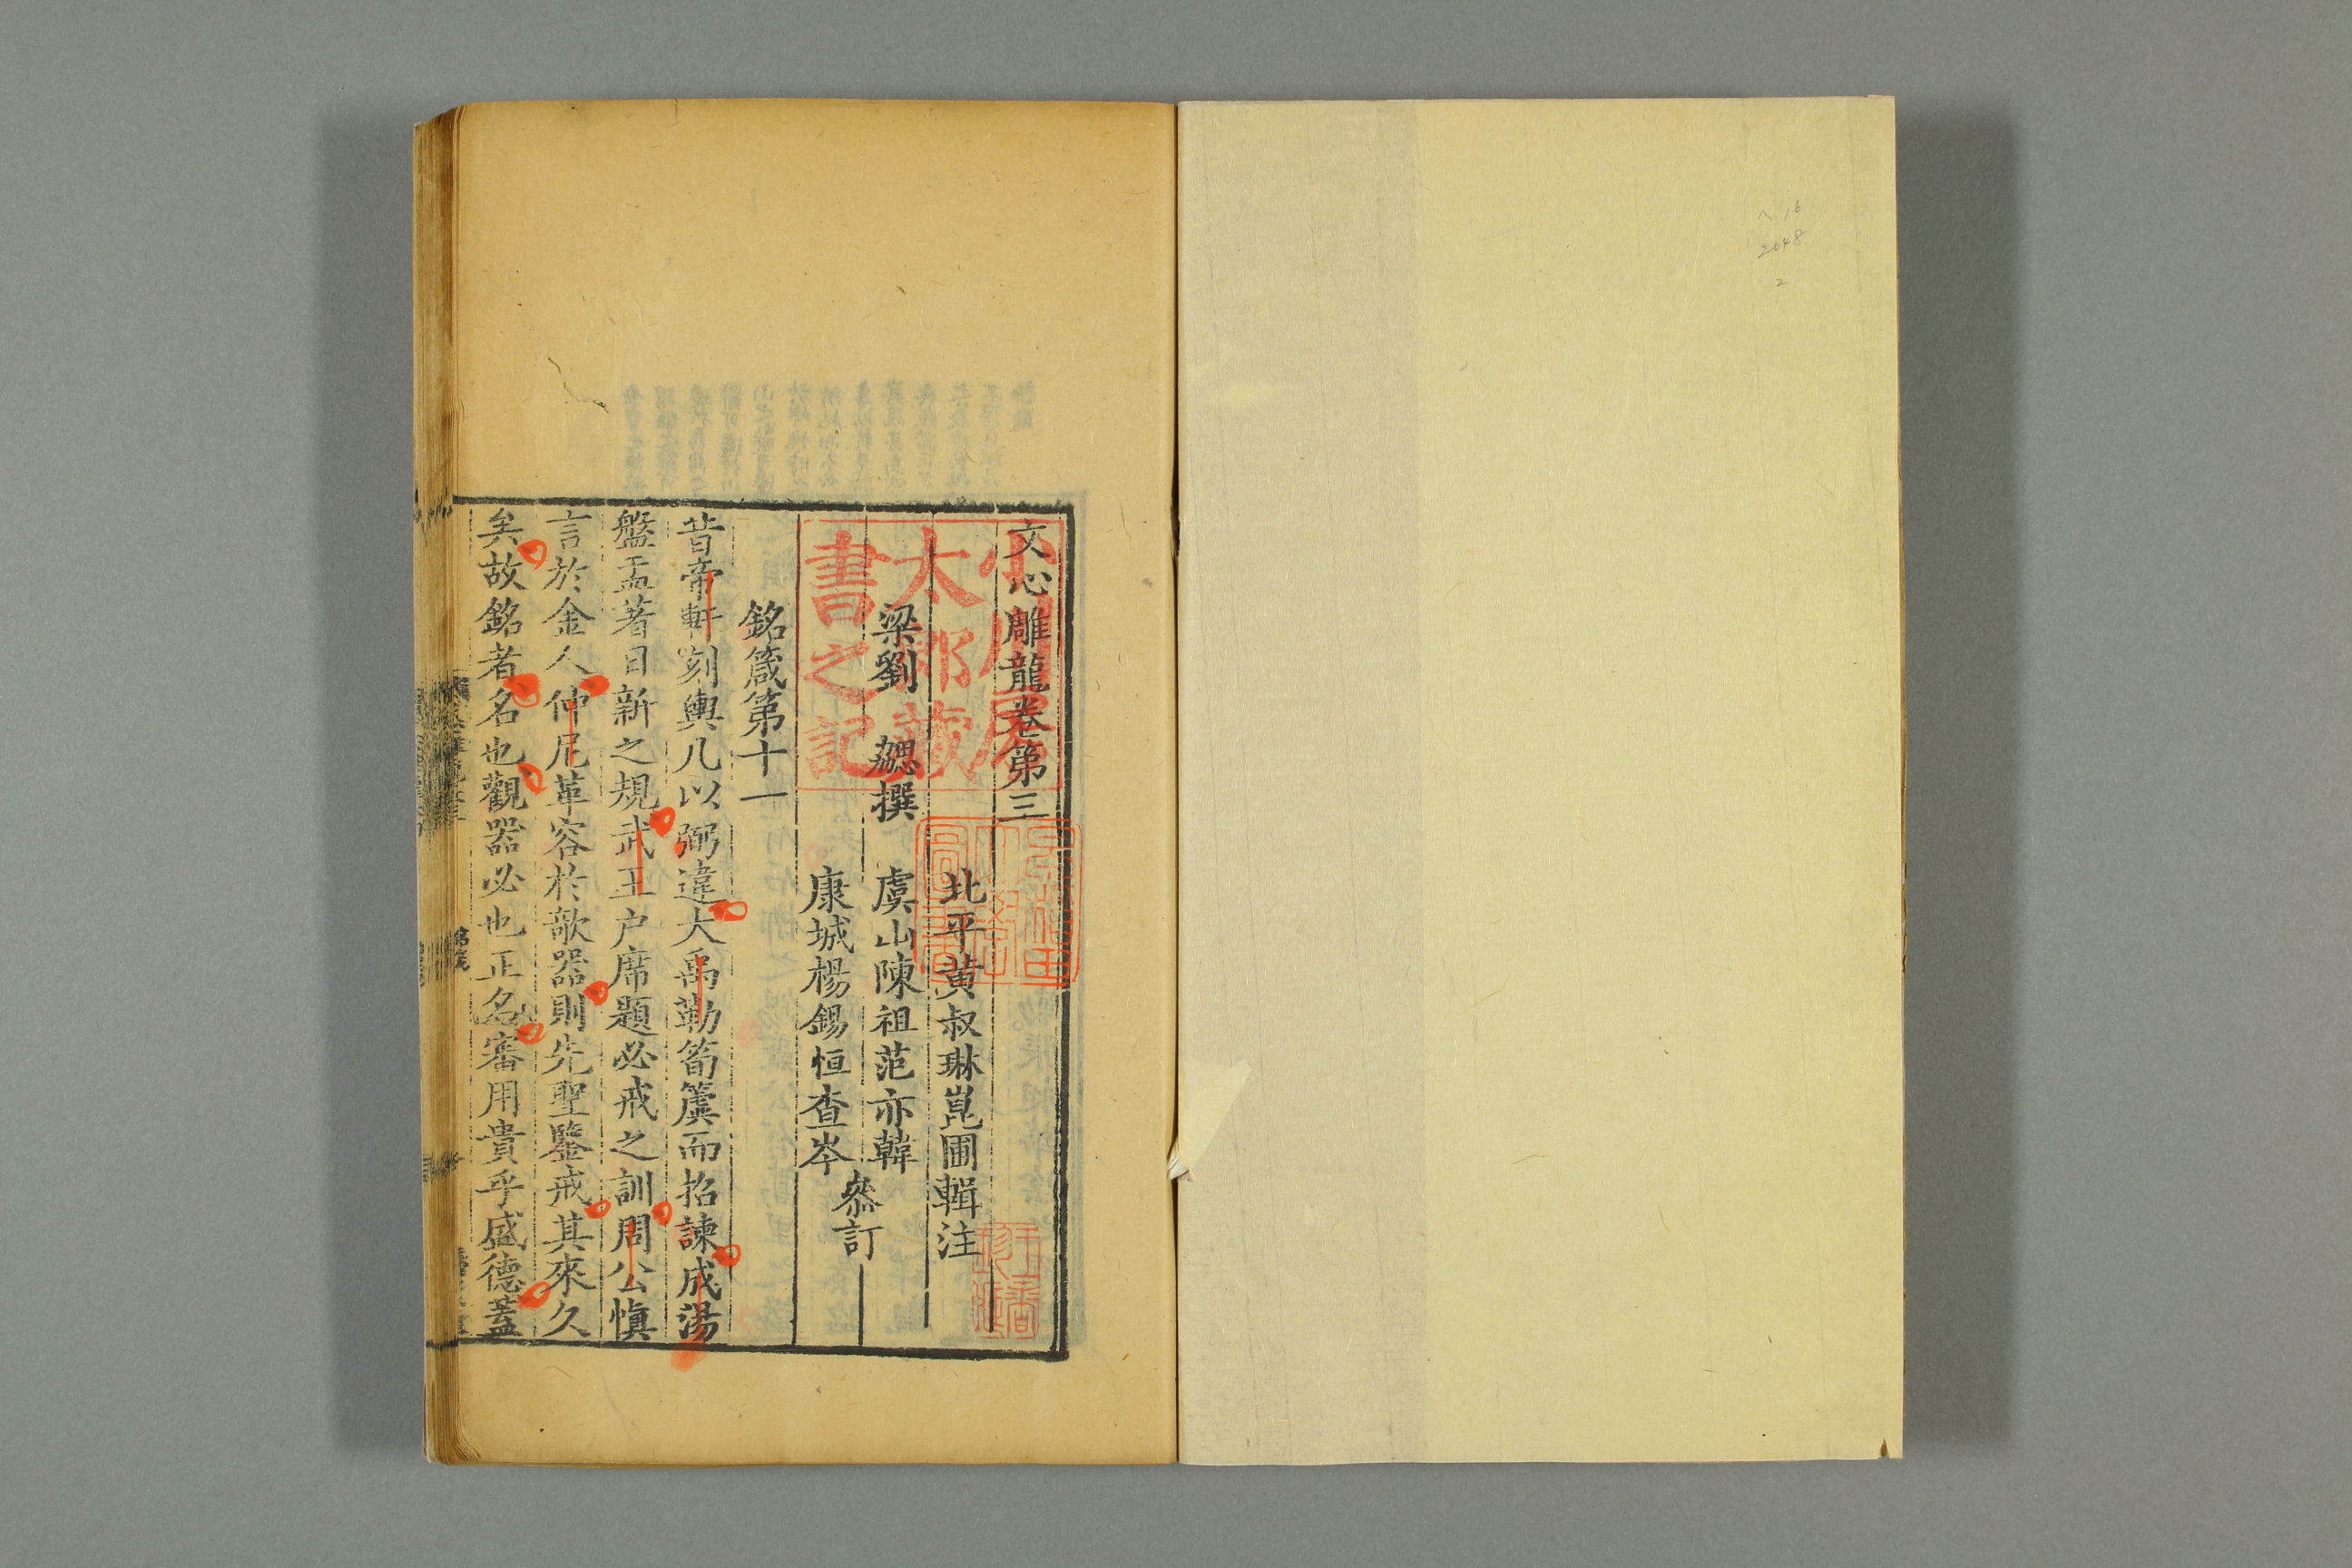 ヘ16
2648
2
文心雕龍卷第三
北平黃叔琳崑圃輯注
梁劉 勰撰 虞山陳祖范亦韓
康城楊錫恒查岑
叅訂
銘箴第十一
昔帝軒刻輿几以弼違大禹勒筍簴而招諫成湯
盤盂著日新之規武王户席題必戒之訓周公慎
言於金人仲尼革容於欹器則先聖鑒戒其來久
矣故銘者名也觀器必也正名審用貴乎盛德蓋
太郎藏
書之記